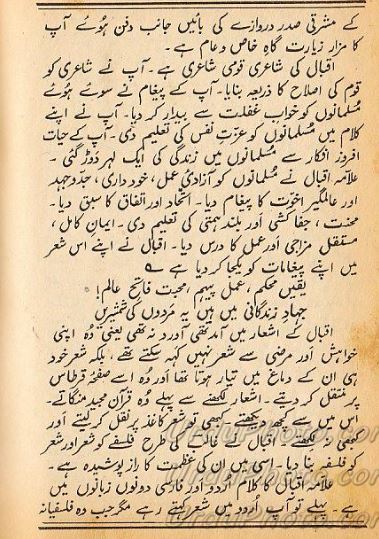 کے مشرقی صدر دروازے کی بائیں جانب دفن ہوئے آپ
کا مزار زیارت گاہِ خاص و عام ہے۔
اقبال کی شاعری قومی شاعری ہے۔ آپ نے شاعری کو
قوم کی اصلاح کا ذریعہ بنایا۔ آپ کے پیغام نے سوئے ہوئے
مسلمانوں کو خوابِ غفلت سے بیدار کر دیا۔ آپ نے اپنے
کلام میں مسلمانوں کو عزتِ نفس کی تعلیم دی۔ آپ کے حیات
افروز افکار سے مسلمانوں میں زندگی کی ایک لہر دوڑ گئی۔
علامہ اقبال نے مسلمانوں کو آزادیٔ عمل، خود داری، جدوجہد
اور عالمگیر اخوت کا پیغام دیا۔ اتحاد اور اتفاق کا سبق دیا۔
محنت، جفاکشی اور بلند ہمتی کی تعلیم دی۔ ایمانِ کامل،
مستقل مزاجی اور عمل کا درس دیا۔ اقبال نے اپنے اس شعر
میں اپنے پیغامات کو یکجا کر دیا ہے ؎
یقیں محکم، عمل پیہم، محبت فاتحِ عالم!
جہادِ زندگانی میں ہیں یہ مردوں کی شمشیریں
اقبال کے اشعار میں آمد تھی آورد نہ تھی یعنی وہ اپنی
خواہش اور مرضی سے شعر نہیں کہہ سکتے تھے، بلکہ شعر خود
ہی ان کے دماغ میں تیار ہوتا تھا اور وہ اسے صفحۂ قرطاس
پر منتقل کر دیتے۔ اشعار لکھنے سے پہلے وہ قرآن مجید منگاتے۔
اس میں سے کچھ دیکھتے کبھی تو شعر کاغذ پر نقل کر لیتے اور
کبھی رکھ لکھتے۔ اقبال نے غالب کی طرح فلسفے کو شعر اور شعر
کو فلسفہ بنا دیا۔ اسی میں ان کی عظمت کا راز پوشیدہ ہے۔
علامہ اقبال کا کلام اردو اور فارسی دونوں زبانوں میں
ہے۔ پہلے تو آپ اردو میں شعر کہتے رہے مگر جب وہ فلسفیانہ